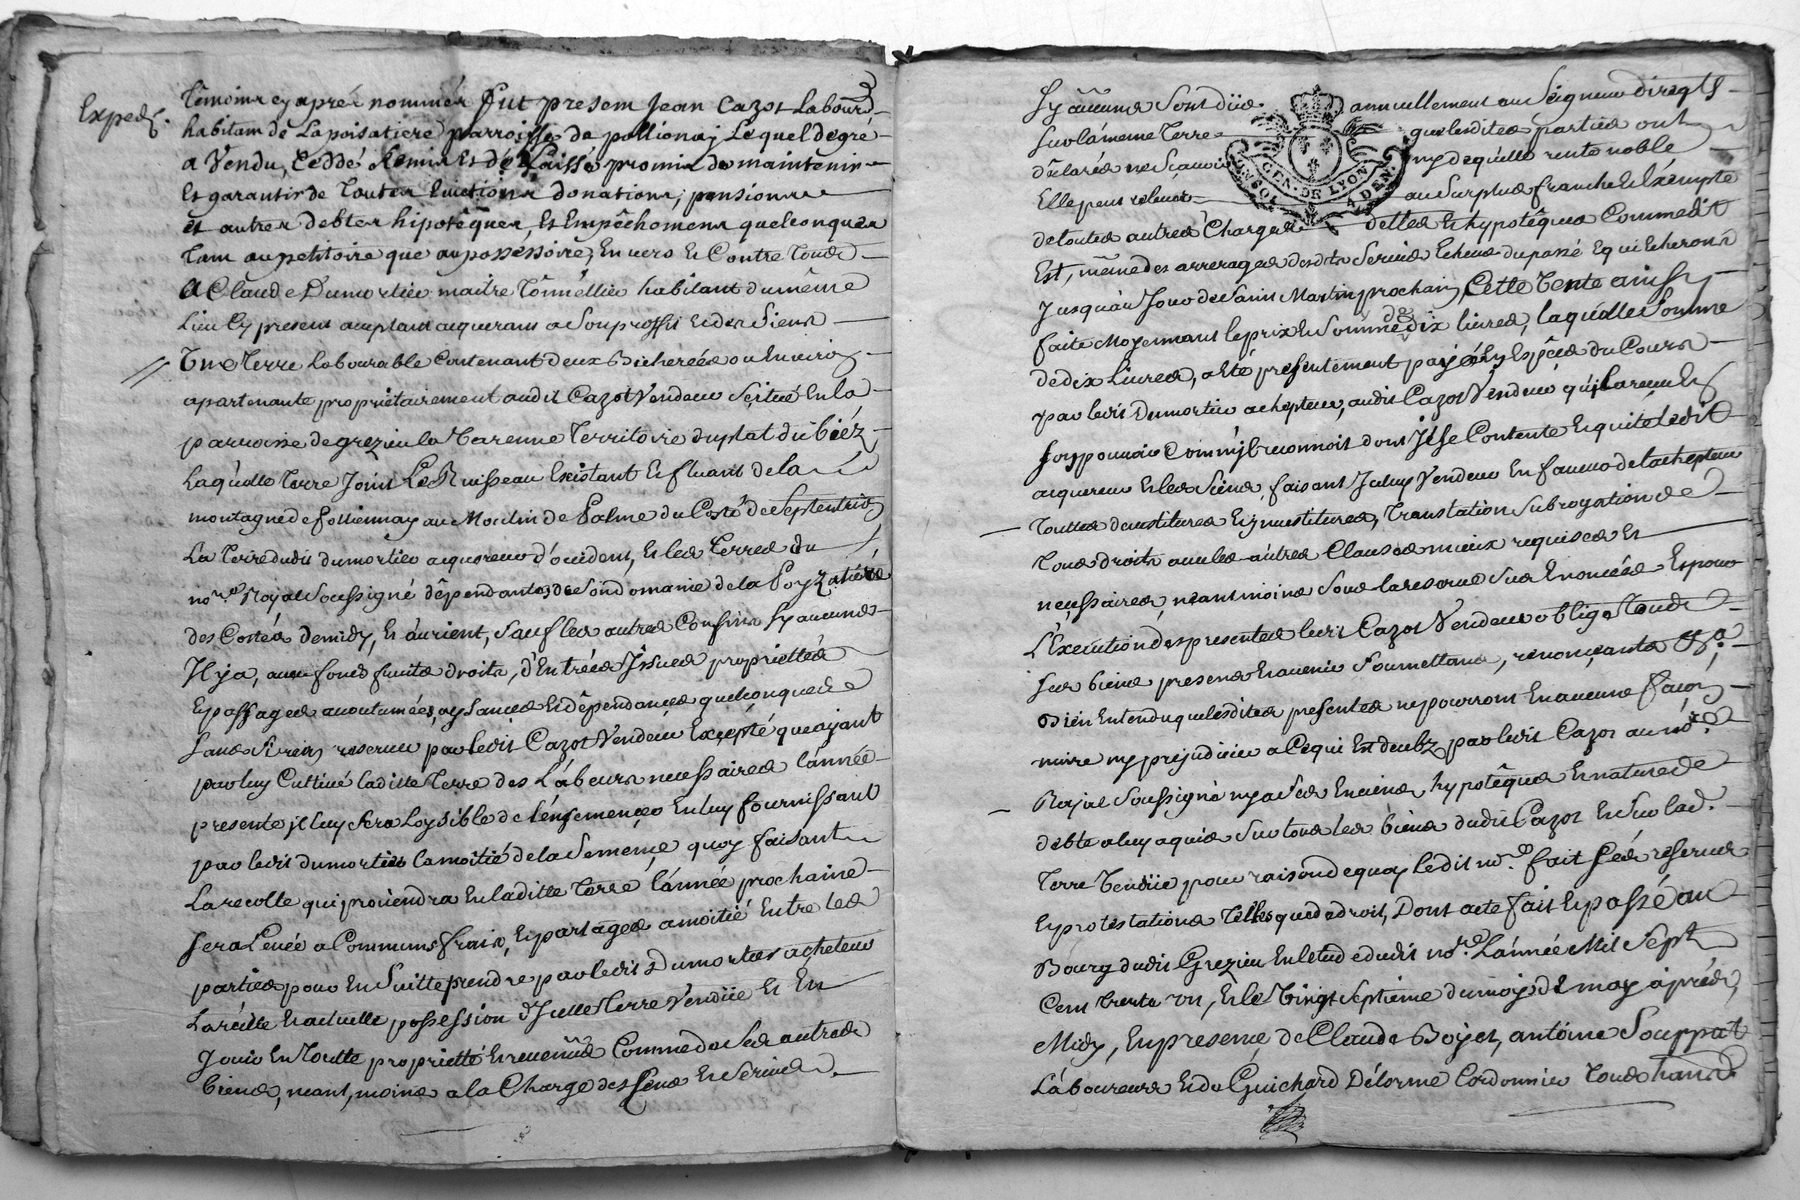 3
Exped.
têmoins cy aprés nommés fut présent Jean Cazot Labour.
habitant de Lapoisatiere parroisse de pollionaj Lequel de gré
a Vendu, Ceddé Remis Et délaissé promis de maintenir
Et garantir de toutes Evictions donations, pensions
et autres debtes hipotêques, Et Empêchements quelconques
tant au petitoire que au possessoire, Envers Et Contre tous
A Claude Dumortier maitre tonnéllier habitant du même
Lieu Cy present acceptant acquerant a Son proffit Et des Siens
Une terre Labourable Contenant deux Bicherées ou Environ
apartenante proprietairement audit Cazot Vendeur Scituée En la
parroisse de grezieu la Varenne territoire du plat du biéz
Laquelle terre Joint Le Ruisseau Existant Et fluant de la
montagne de pollionnay au Moulin de Palme du Costé de Septentrion
La terre dudit dumortier acquereur d'occident, Et les terres du
no.re Royal Soussigné dépendantes de Son domaine de la Poyzatiére
des Costés de midy, Et d'orient, Sauf les autres Confins Sy aucuns
Il y a, avec fonds fruits droits, d'Entrées Issues proprietés
Et passages accoutumées, aysances Et dêpendances quelconques
Sans Si rien reserver par ledit Cazot Vendeur Excepté que ayant
par luy Cultivé ladite terre des Labeurs necessaires l'année
presente il luy Sera Loysible de l'ensemençer En luy fournissant
par ledit dumortier la moitié de la Semence quoy faisant
La recolte qui proviendra En ladite terre l'année prochaine
Sera Levée a Communs frais, Et partagée a moitié Entre les
parties pour En Suitte prendre par ledit Dumortier acheteur
La réelle Et actuelle possession d'Icelle terre Vendüe Et En
Jouir En toutte proprietté Et revenus Comme de Ses autres
biens, neant,moins a la Charge des Cens Et Servis
Sy aucuns Sont düs annuellement au Seigneur direct
Sur la même terre que lesdites parties ont
déclarés ne Scavoir ny de quelle rente noble
GEN. DE LYON
Elle peut relever au Surplus franche Et Exempte
de toutes autres Charges dettes Et hypotêques Comme dit
Est, même des arrerages desdits Servis Echus du passé Et qui Echeront
Jusqu'au Jour de Saint Martin prochain, Cette Vente ainsy
faite Moyennant le prix Et Somme de dix livres, laquelle Somme
de dix Livres, a Eté presentement payée En Espéces du Cours
par ledit Dumortier achepteur, audit Cazot Vendeur qui la receu Et
dont Il Se Contente Et quite Ledit
acquereur Et les Siens, faisant Iceluy Vendeur En faveur de lachepteur
touttes devestitures Et investitures, translation Subrogation de
tous droits avec les autres Clauses mieux requises Et
neçessaires, neantmoins Sous la reserve Sus Enoncée Et pour
L'Execution des presentes ledit Cazot Vendeur oblige tous
Ses biens presens Et avenir Soumettans, renonçants &.a
Bien Entendu que lesdites presentes ne pourront En aucune façon
nuire ny prejudicier a Ce qui Est deubz par ledit Cazot au no.re
Royal Soussigné ny a Ses Enciens hypotêques Et nature de
debte a luy aquis Sur tous les biens dudit Cazot Et Sur lad.
terre Vendüe pour raison de quoy ledit no.re fait Ses reserves
Et protestations telles que de droit, Dont acte fait Et passé au
Bourg dudit Grezieu En létude dudit no.re L'année Mil Sept
Cent trente un, Et le Vingt Septieme du mois de may aprés
Midy, En presence de Claude Boyer, antoine Souppat
Laboureurs Et de Guichard Délorme Cordonnier tous